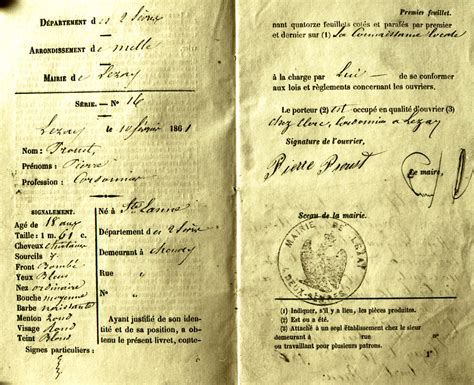 DÉPARTEMENT des 2 Sèvres
ARRONDISSEMENT de melle
MAIRIE de Lezay
SÉRIE. — N° 16
Lezay le 10 février 1861
Nom : Proust
Prénoms : Pierre
Profession : Cordonnier
SIGNALEMENT.
Agé de 18 ans
Taille : 1 m. 61 c.
Cheveux chatains
Sourcils
Front Bombé
Yeux Bleus
Nez ordinaire
Bouche moyenne
Barbe naissante
Menton Rond
Visage Rond
Teint Blond
Signes particuliers :
Né à Ste
Département des 2 Sèvres
Demeurant à
Rue
N°
Ayant justifié de son iden-
tité et de sa position, a ob-
tenu le présent livret, conte-
Premier feuillet.
nant quatorze feuillets cotés et parafés par premier
et dernier sur (1) Sa Connaissance locale
à la charge par Lui de se conformer
aux lois et règlements concernant les ouvriers.
Le porteur (2) est occupé en qualité d'ouvrier (3)
chez cordonnier à Lezay
Signature de l'ouvrier,
Pierre Proust
Le maire,
Sceau de la mairie.
MAIRIE DE LEZAY
DEUX-SÈVRES
(1) Indiquer, s'il y a lieu, les pièces produites.
(2) Est ou a été.
(3) Attaché à un seul établissement chez le sieur
demeurant à rue n°
ou travaillant pour plusieurs patrons.
1*